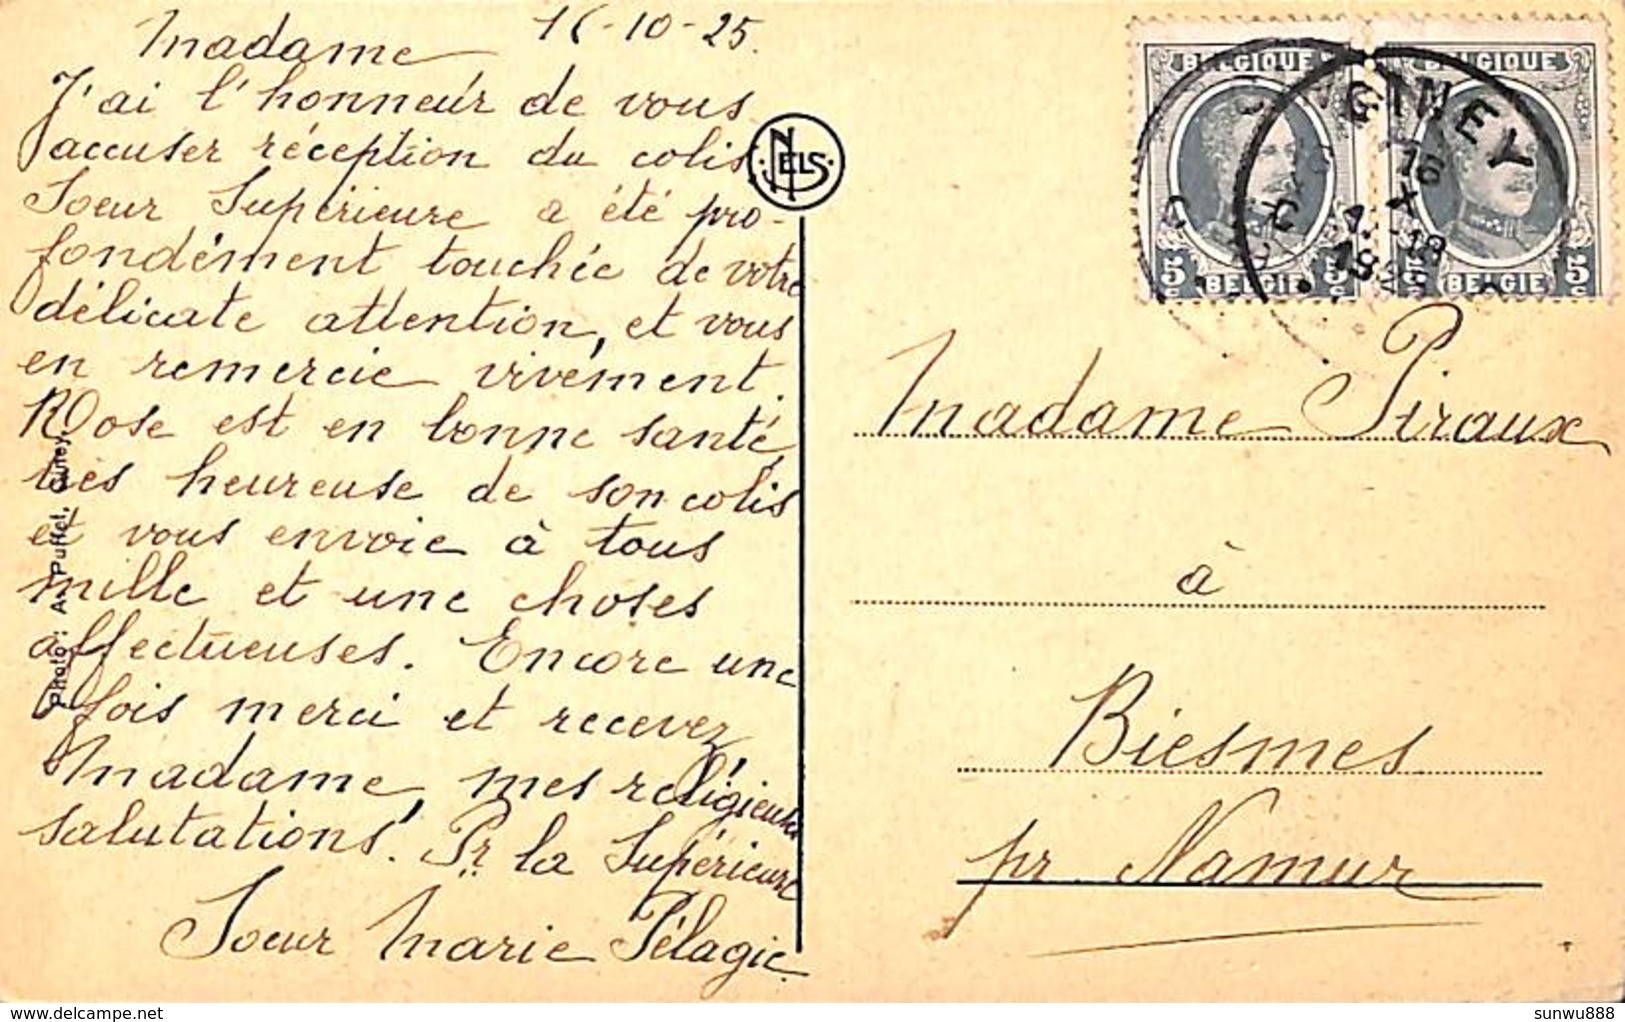 16-10-25.
Madame
J'ai l'honneur de vous
accuser réception du colis.
Soeur Supérieure a été pro-
fondément touchée de votre
délicate attention, et vous
en remercie vivement.
Rose est en bonne santé,
très heureuse de son colis
et vous envoie à tous
mille et une choses
affectueuses. Encore une
fois merci et recevez,
Madame, mes religieuses
salutations. Pr la Supérieure
Soeur Marie Pélagie.
Photo: A. Puffet, Ciney.
NELS
BELGIQUE
BELGIQUE
5c BELGIE 5c
5c BELGIE 5c
CINEY
16
X
18
19
Madame Piraux
à
Biesmes
pr. Namur
delcampe.net
sunwu888